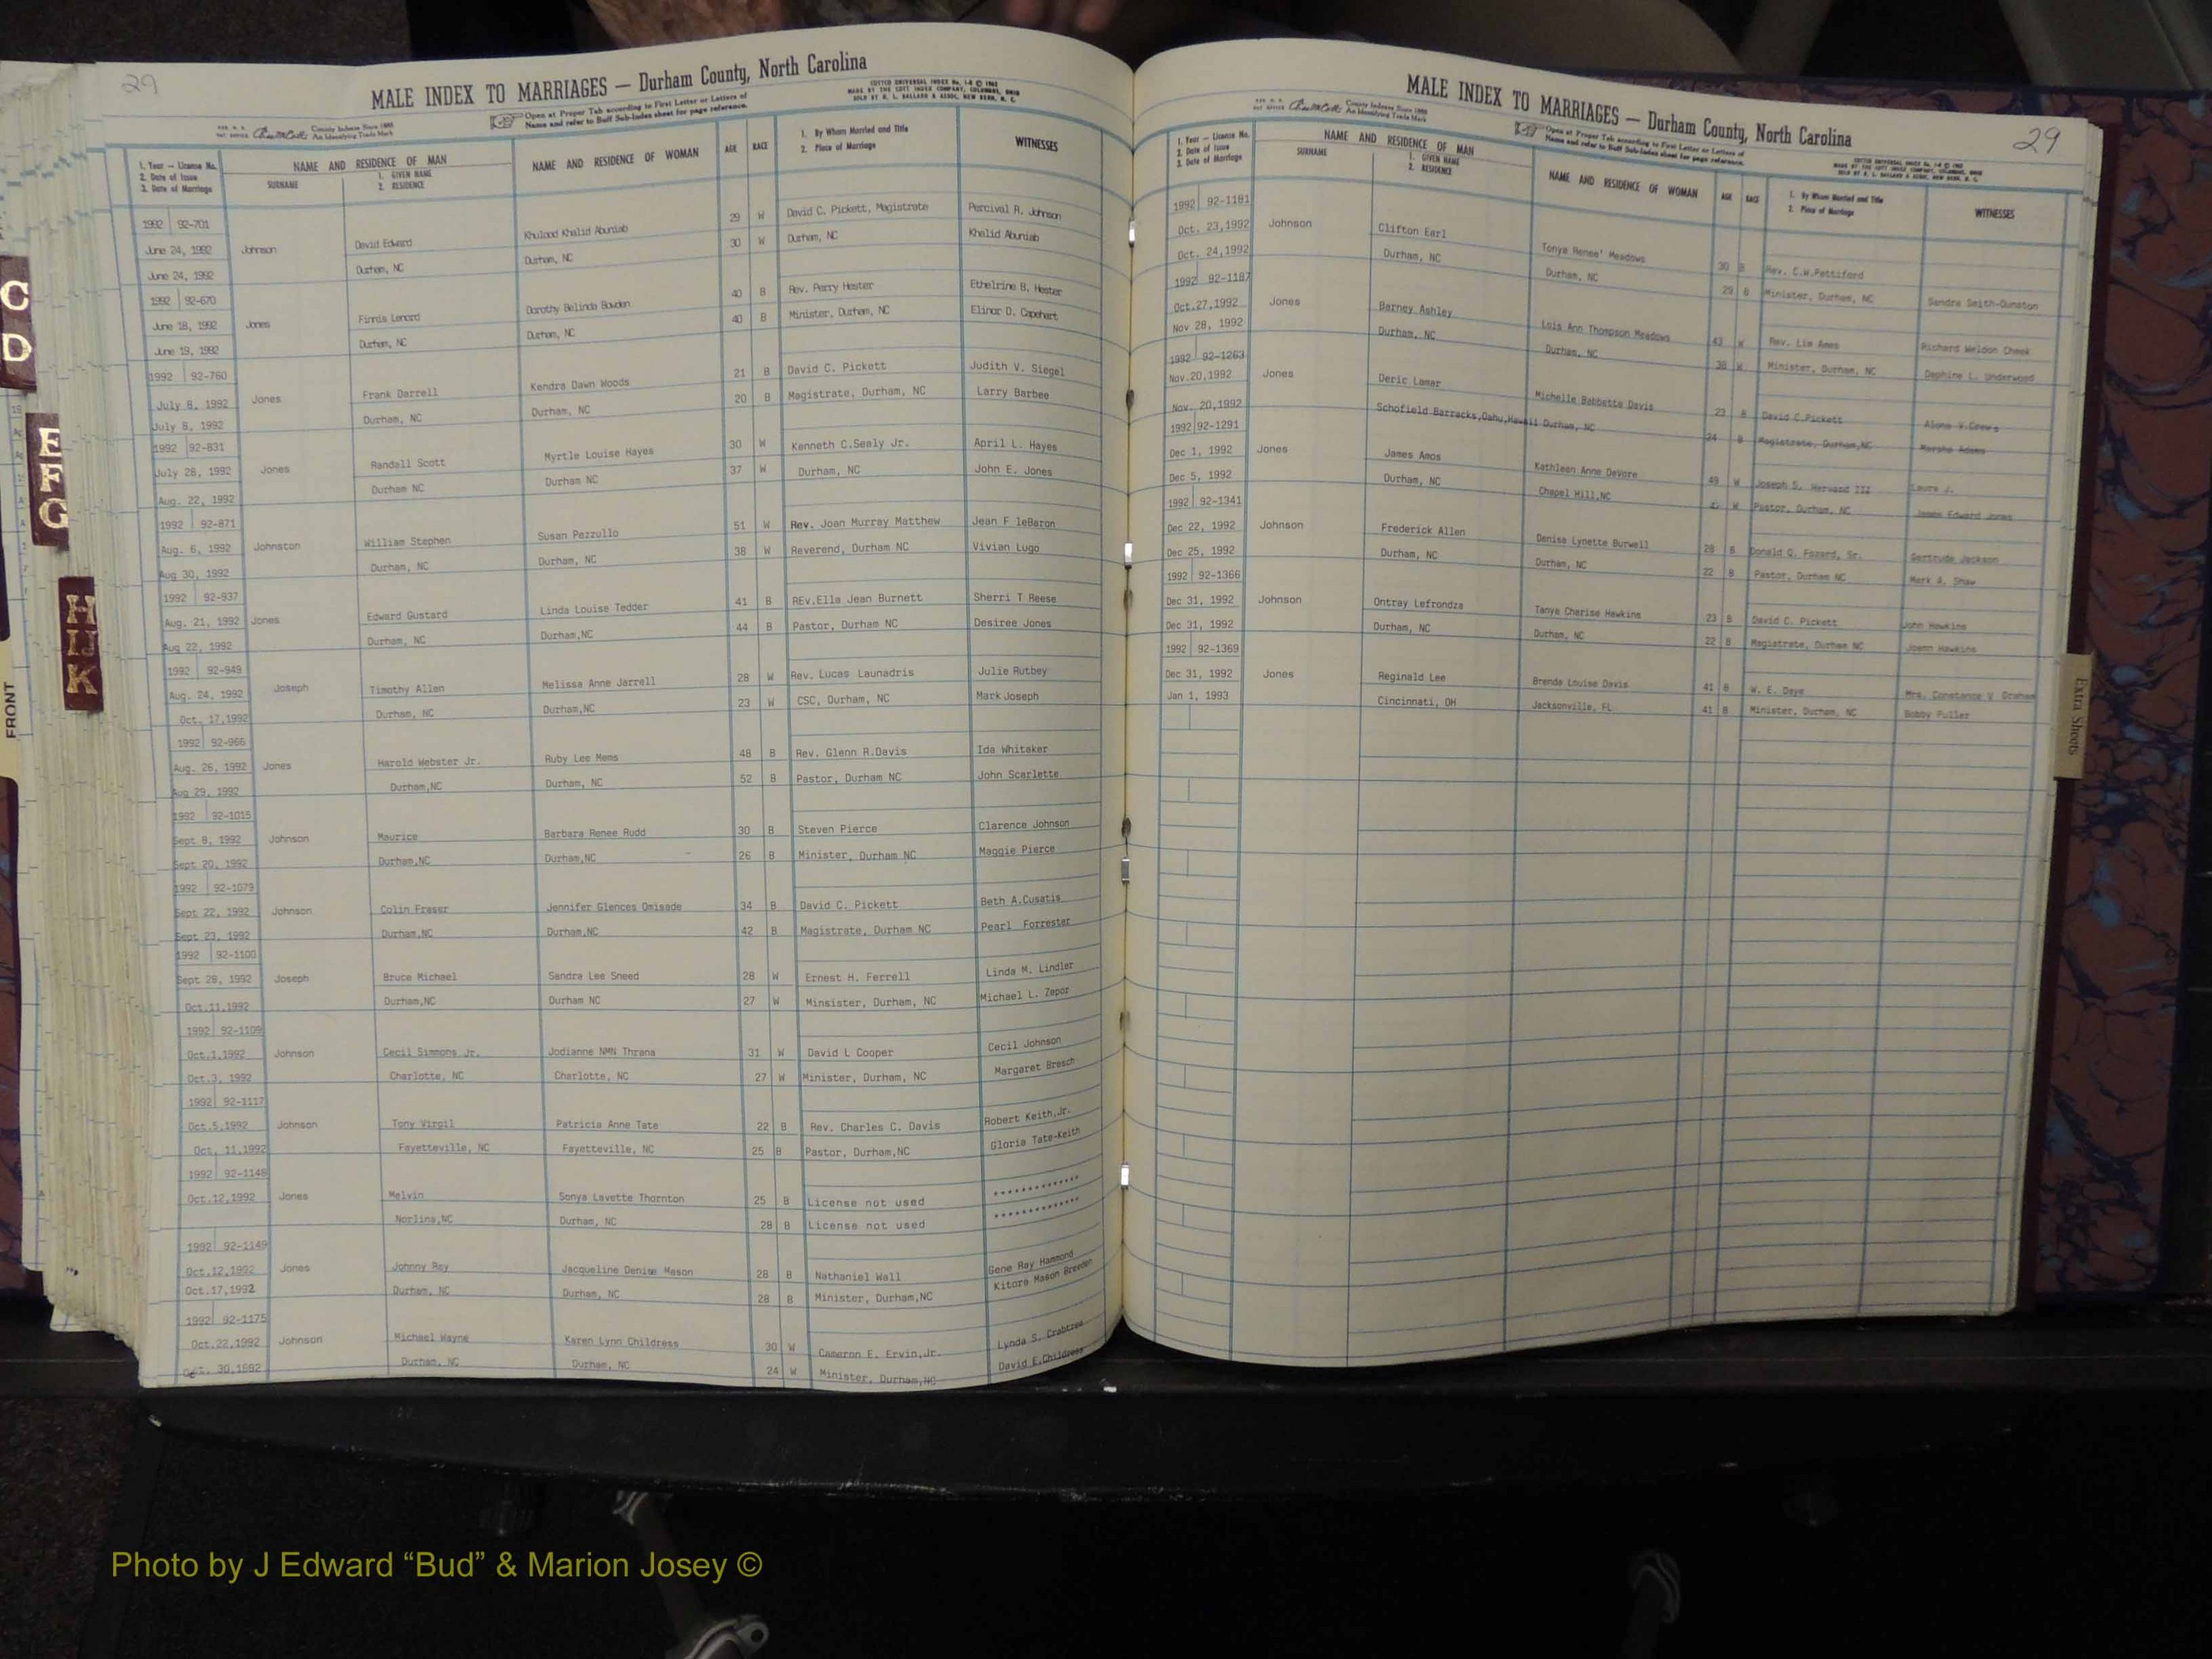 29
MALE INDEX TO MARRIAGES — Durham County, North Carolina
COTTCO UNIVERSAL INDEX No. 1-6 © 1962
MADE BY THE COTT INDEX COMPANY, COLUMBUS, OHIO
SOLD BY G. L. BALLARD & ASSOC, NEW BERN, N. C.
County Indexes Since 1888
An Identifying Trade Mark
Open at Proper Tab according to First Letter or Letters of
Name and refer to Buff Sub-Index sheet for page reference.
1. Year — License No.
2. Date of Issue
3. Date of Marriage
NAME AND RESIDENCE OF MAN
SURNAME
1. GIVEN NAME
2. RESIDENCE
NAME AND RESIDENCE OF WOMAN
AGE RACE
1. By Whom Married and Title
2. Place of Marriage
WITNESSES
1992 92-701 29 W David C. Pickett, Magistrate Percival R. Johnson
June 24, 1992 Johnson David Edward Khulood Khalid Abuniab 30 W Durham, NC Khalid Abuniab
June 24, 1992 Durham, NC Durham, NC
1992 92-670 40 B Rev. Perry Hester Ethelrine B. Hester
June 18, 1992 Jones Finnis Lenard Dorothy Belinda Bowden 40 B Minister, Durham, NC Elinor D. Capehart
June 19, 1992 Durham, NC Durham, NC
1992 92-760 21 B David C. Pickett Judith V. Siegel
July 8, 1992 Jones Frank Darrell Kendra Dawn Woods 20 B Magistrate, Durham, NC Larry Barbee
July 8, 1992 Durham, NC Durham, NC
1992 92-831 30 W Kenneth C.Sealy Jr. April L. Hayes
July 28, 1992 Jones Randall Scott Myrtle Louise Hayes 37 W Durham, NC John E. Jones
Aug. 22, 1992 Durham NC Durham NC
1992 92-871 51 W Rev. Joan Murray Matthew Jean F leBaron
Aug. 6, 1992 Johnston William Stephen Susan Pezzullo 38 W Reverend, Durham NC Vivian Lugo
Aug 30, 1992 Durham, NC Durham, NC
1992 92-937 41 B REv.Ella Jean Burnett Sherri T Reese
Aug. 21, 1992 Jones Edward Gustard Linda Louise Tedder 44 B Pastor, Durham NC Desiree Jones
Aug 22, 1992 Durham, NC Durham,NC
1992 92-949 28 W Rev. Lucas Launadris Julie Rutbey
Aug. 24, 1992 Joseph Timothy Allen Melissa Anne Jarrell 23 W CSC, Durham, NC Mark Joseph
Oct. 17,1992 Durham, NC Durham,NC
1992 92-966 48 B Rev. Glenn R.Davis Ida Whitaker
Aug. 26, 1992 Jones Harold Webster Jr. Ruby Lee Mems 52 B Pastor, Durham NC John Scarlette
Aug 29, 1992 Durham,NC Durham, NC
1992 92-1015 30 B Steven Pierce Clarence Johnson
Sept 8, 1992 Johnson Maurice Barbara Renee Rudd 26 B Minister, Durham NC Maggie Pierce
Sept 20, 1992 Durham,NC Durham,NC
1992 92-1079
Sept 22, 1992 Johnson Colin Fraser Jennifer Glences Omisade 34 B David C. Pickett Beth A.Cusatis
Sept 23, 1992 Durham,NC Durham,NC 42 B Magistrate, Durham NC Pearl Forrester
1992 92-1100
Sept 28, 1992 Joseph Bruce Michael Sandra Lee Sneed 28 W Ernest H. Ferrell Linda M. Lindler
Oct.11,1992 Durham,NC Durham NC 27 W Minsister, Durham, NC Michael L. Zepor
1992 92-1109
Oct.1,1992 Johnson Cecil Simmons Jr. Jodianne NMN Thrana 31 W David L Cooper Cecil Johnson
Oct.3, 1992 Charlotte, NC Charlotte, NC 27 W Minister, Durham, NC Margaret Broach
1992 92-1117
Oct.5,1992 Johnson Tony Virgil Patricia Anne Tate 22 B Rev. Charles C. Davis Robert Keith,Jr.
Oct. 11,1992 Fayetteville, NC Fayetteville, NC 25 B Pastor, Durham,NC Gloria Tate-Keith
1992 92-1148
Oct.12,1992 Jones Melvin Sonya Lavette Thornton 25 B License not used **************
Norlina,NC Durham, NC 28 B License not used **************
1992 92-1149
Oct.12,1992 Jones Johnny Ray Jacqueline Denise Mason 28 B Nathaniel Wall Gene Ray Hammond
Oct.17,1992 Durham, NC Durham, NC 28 B Minister, Durham,NC Kitora Mason Breeden
1992 92-1175
Oct.22,1992 Johnson Michael Wayne Karen Lynn Childress 30 W Cameron E. Ervin,Jr. Lynda S. Crabtree
Oct. 30,1992 Durham, NC Durham, NC 24 W Minister, Durham,NC David E.Childress
MALE INDEX TO MARRIAGES — Durham County, North Carolina
29
County Indexes Since 1888
An Identifying Trade Mark
Open at Proper Tab according to First Letter or Letters of
Name and refer to Buff Sub-Index sheet for page reference.
COTTCO UNIVERSAL INDEX No. 1-6 © 1962
MADE BY THE COTT INDEX COMPANY, COLUMBUS, OHIO
SOLD BY G. L. BALLARD & ASSOC, NEW BERN, N. C.
1. Year — License No.
2. Date of Issue
3. Date of Marriage
NAME AND RESIDENCE OF MAN
SURNAME
1. GIVEN NAME
2. RESIDENCE
NAME AND RESIDENCE OF WOMAN
AGE RACE
1. By Whom Married and Title
2. Place of Marriage
WITNESSES
1992 92-1181
Oct. 23,1992 Johnson Clifton Earl Tonya Renee' Meadows 30 B Rev. C.W.Pettiford
Oct. 24,1992 Durham, NC Durham, NC 29 B Minister, Durham, NC Sandra Smith-Dunston
1992 92-1187
Oct.27,1992 Jones Barney Ashley Lois Ann Thompson Meadows 43 W Rev. Lim Ames Richard Weldon Cheek
Nov 28, 1992 Durham, NC Durham, NC 38 W Minister, Durham, NC Daphine L. Underwood
1992 92-1263
Nov.20,1992 Jones Deric Lamar Michelle Babbette Davis 23 B David C.Pickett
Nov. 20,1992 Schofield Barracks,Oahu,Hawaii Durham, NC 24 B Magistrate, Durham,NC Marsha Adams
1992 92-1291
Dec 1, 1992 Jones James Amos Kathleen Anne DeVore 49 W Joseph S. III Laura J.
Dec 5, 1992 Durham, NC Chapel Hill,NC W Pastor, Durham, NC James Edward Jones
1992 92-1341
Dec 22, 1992 Johnson Frederick Allen Denise Lynette Burwell 28 B Donald Q. Fozard, Sr. Gertrude Jackson
Dec 25, 1992 Durham, NC Durham, NC 22 B Pastor, Durham NC Mark A. Shaw
1992 92-1366
Dec 31, 1992 Johnson Ontray Lefrondza Tanya Cherise Hawkins 23 B David C. Pickett John Hawkins
Dec 31, 1992 Durham, NC Durham, NC 22 B Magistrate, Durham NC Joann Hawkins
1992 92-1369
Dec 31, 1992 Jones Reginald Lee Brenda Louise Davis 41 B W. E. Daye Mrs. Constance V Graham
Jan 1, 1993 Cincinnati, OH Jacksonville, FL 41 B Minister, Durham, NC Bobby Fuller
C
D
E
F
G
H
IJ
K
FRONT
Extra Sheets
Photo by J Edward “Bud” & Marion Josey ©